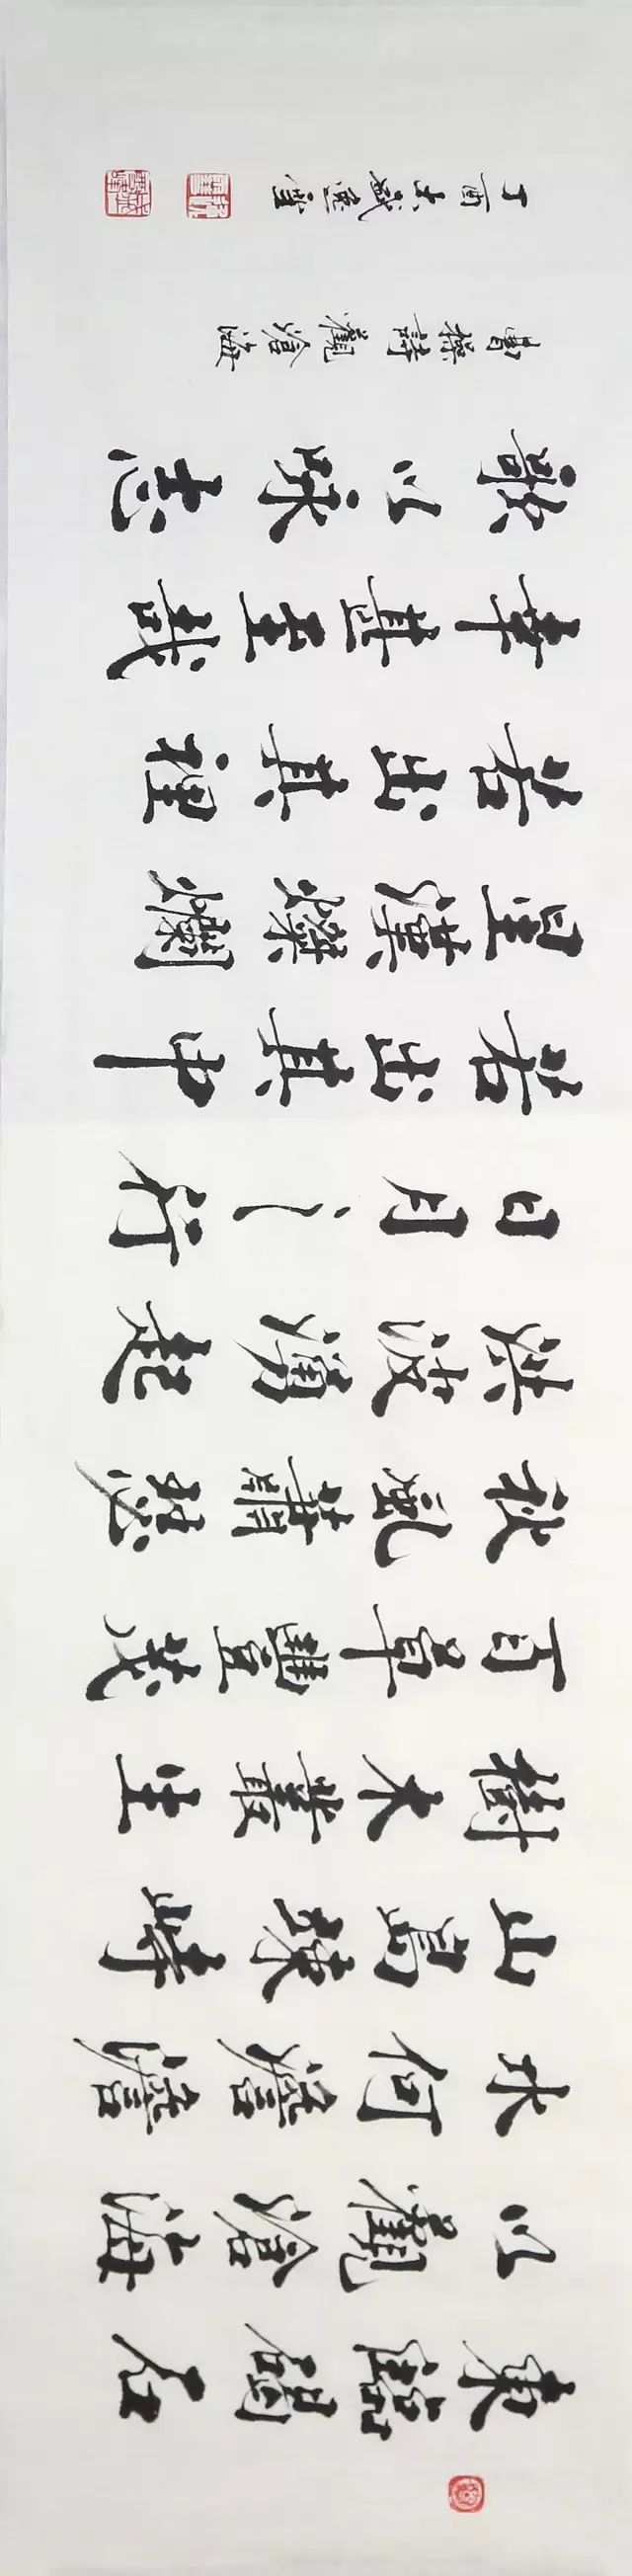 東臨碣石
以觀滄海
水何澹澹
山島竦峙
樹木叢生
百草豐茂
秋風蕭瑟
洪波湧起
日月之行
若出其中
星漢燦爛
若出其裡
幸甚至哉
歌以咏志
曹操詩觀滄海
丁酉